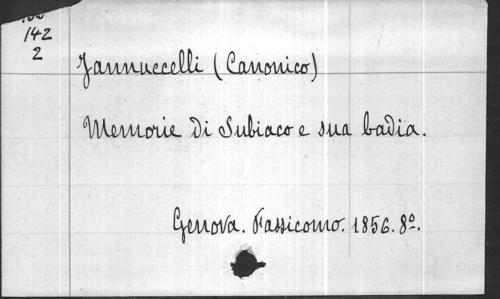 142
2
Jannuccelli (Canonico)
Memorie di Subiaco e sua badia.
Genova. Fassicomo. 1856. 8º.